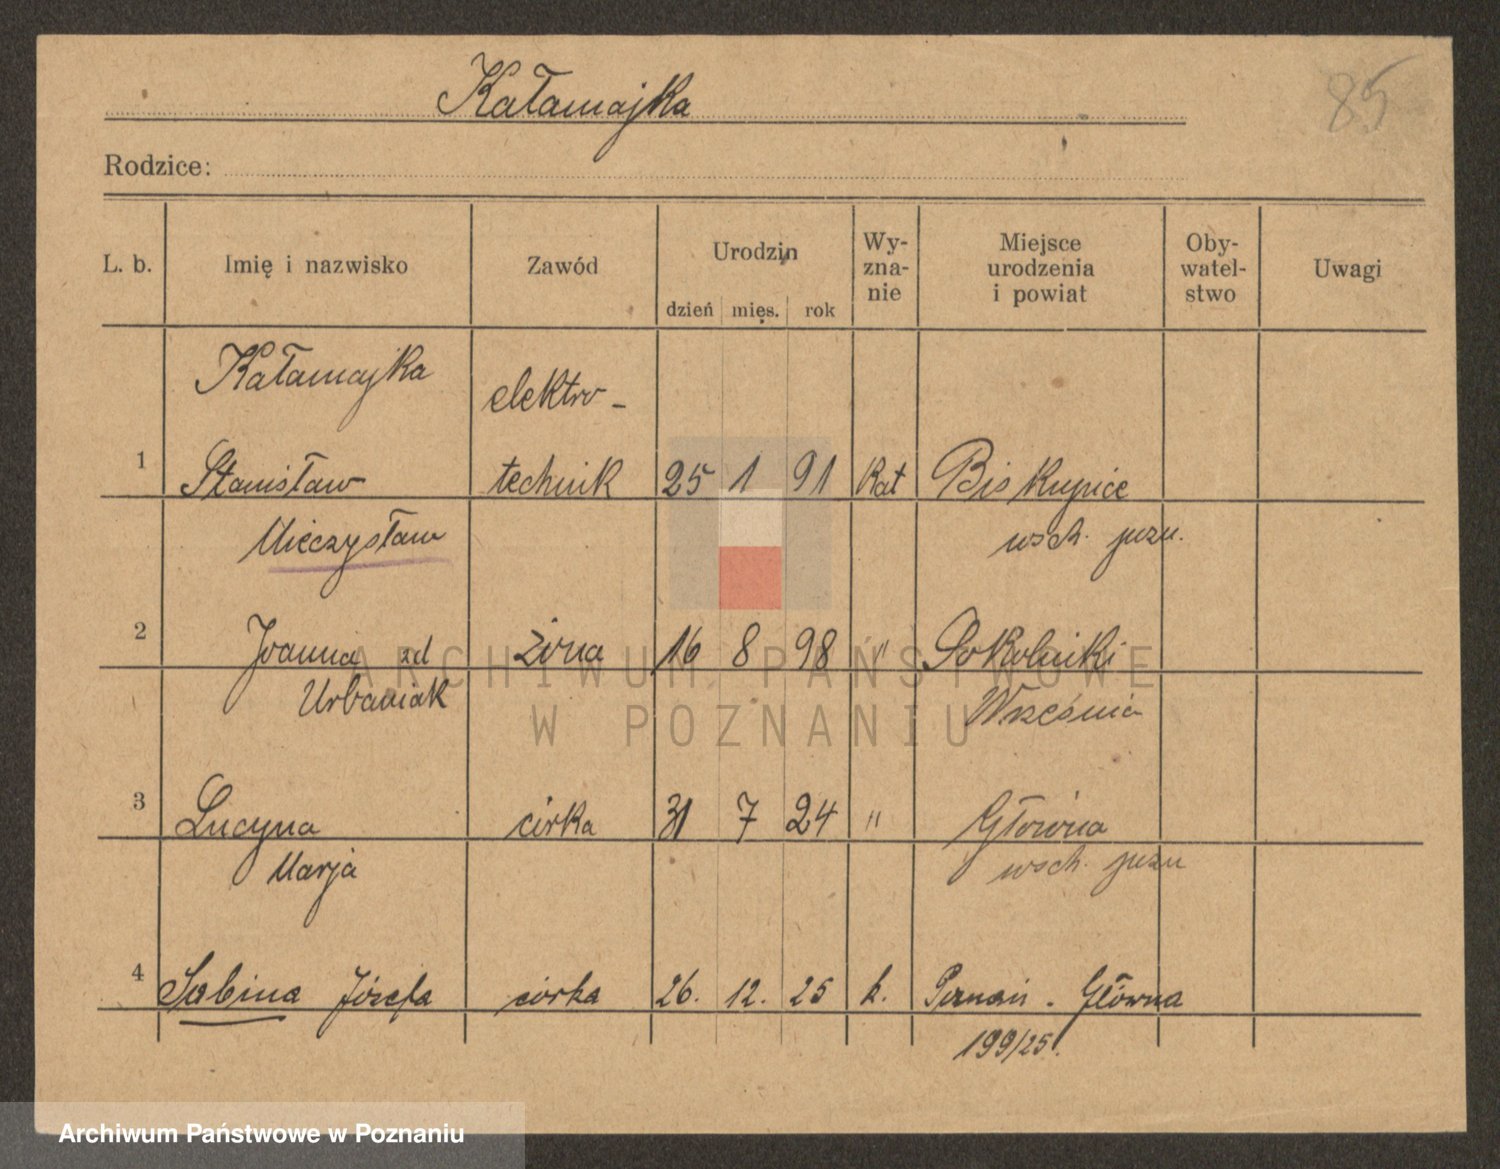 Kałamajka
85
Rodzice:
L. b. Imię i nazwisko Zawód Urodzin dzień mięs. rok Wy-zna-nie Miejsce urodzenia i powiat Oby-watel-stwo Uwagi
Kałamajka elektro-
1 Stanisław technik 25 1 91 Kat Biskupice
Mieczysław wsch. pozn.
2 Joanna zd żona 16 8 98 " Sokolniki
Urbaniak Września
3 Lucyna córka 31 7 24 " Główna
Marja wsch. pozn
4 Sabina Józefa córka 26. 12. 25 k. Poznań - Główna
199/25.
ARCHIWUM PAŃSTWOWE
W POZNANIU
Archiwum Państwowe w Poznaniu